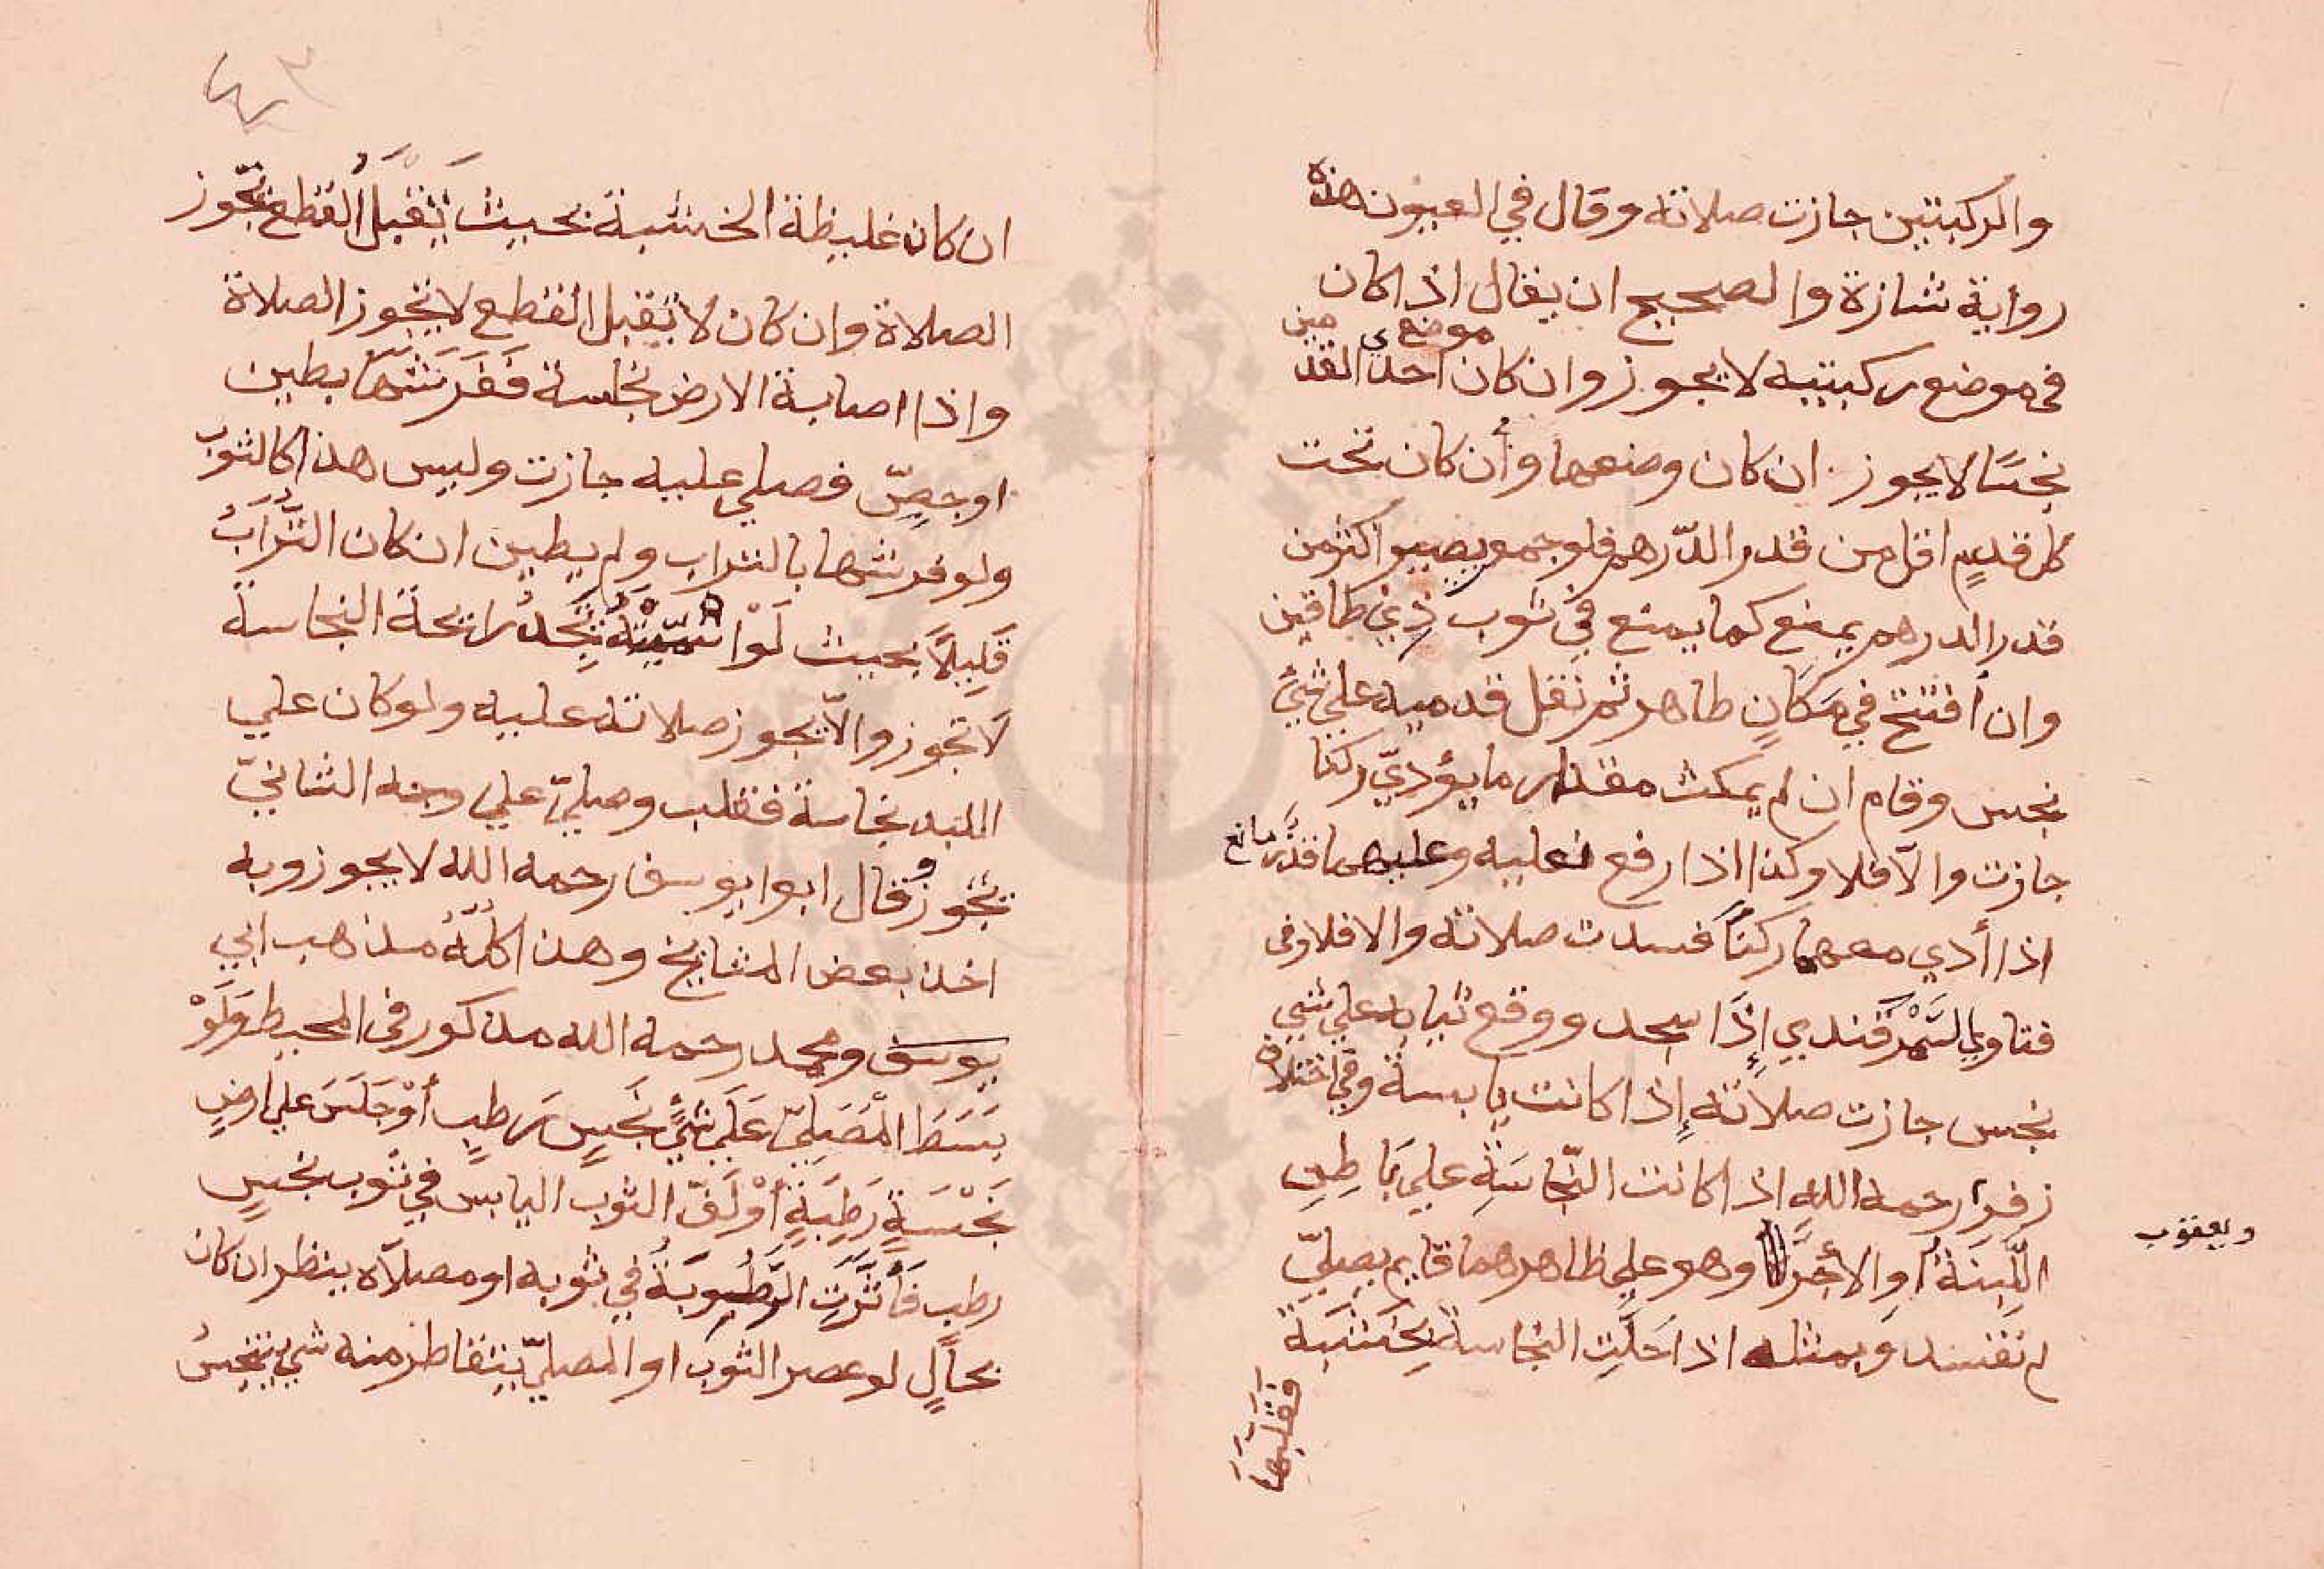 والركبتين جازت صلاته وقال في العيون هذه
رواية شازة والصحيح ان يقال اذا كان
في موضع ركبتيه لا يجوز وان كان احد القد
موضعي مين
نجسًا لا يجوز ان كان وضعهما وأن كان تحت
كل قدمٍ اقل من قدر الدّرهم فلو جمع يصير اكثر من
قدر الدرهم يمنع كما يمنع في ثوب ذي طاقين
وان افتتح في مَكَانٍ طاهر ثم نقل قدميه علي شئٍ
نجس وقام ان لم يمكث مقدار ما يؤديّ ركنا
جازت والّا فلا وكذا اذا رفع نعليه وعليهما قذر مانع
اذا أدي معهما ركنًا فسدت صلاته والا فلا وفى
فتاوي السَمْرقندي إِذَا سجد ووقع ثيابه علي شيىٍ
نجس جازت صلاته إذا كانت يابسة وفي اختلاف
زفر رحمه الله اذا كانت النّجاسَةِ علي بَاطِنِ
ويعقوب
اللّبِنَةُ اوِ الاجُرّ وهو علي ظاهرهما قايم يصليّ
لم تفسد وبمثله اذا حَلّتِ النجاسة بخَشَبَةٍ
فقلبها
٤٣
ان كان غليظة الخشبة بحيث تَقْبَلُ القطع تجّوز
الصلاة وان كان لا تقبل القطع لا يتجوز الصلاة
واذا اصابة الارض نجاسة فَفَرَشَهَا بطين
او جصّ فصلي عليه جازت وليس هذا كالثوب
ولو فرشها بالتراب ولم يطين ان كان التّرَابُ
قَلِيلًا بحيث لَوْ تَجِدُ رائحة النجاسة
لَا تجوز والّا يجوز صلاته عليه ولو كان علي
اللبد نجاسة فقلب وصليّ علي وجه الثانيّ
تجوزُ وقال ابوا يوسف رحمه الله لا يجوز وبه
اخذ بعض المشايخ وهذا كلّهُ مذهب ابي
يوسف ومحمد رحمه الله مذكور في المحيط وَلَوْ
بَسَطَ المُصَلِيّ عَلَي شَئٍ نَجَسٍ رطبٍ أوْ جَلَسَ علي ارضٍ
نَجْسَةٍ رَطِبَةٍ أوْ لَفّ الثوب اليابس في ثَوب نجسٍ
رطب فَأَثّرَتِ الرّطُوبَةُ في ثوبه او مصلّاه ينظر ان كان
بحَالٍ لو عصر الثوب او المصليّ يتقاطر منه شي يتنجسُ